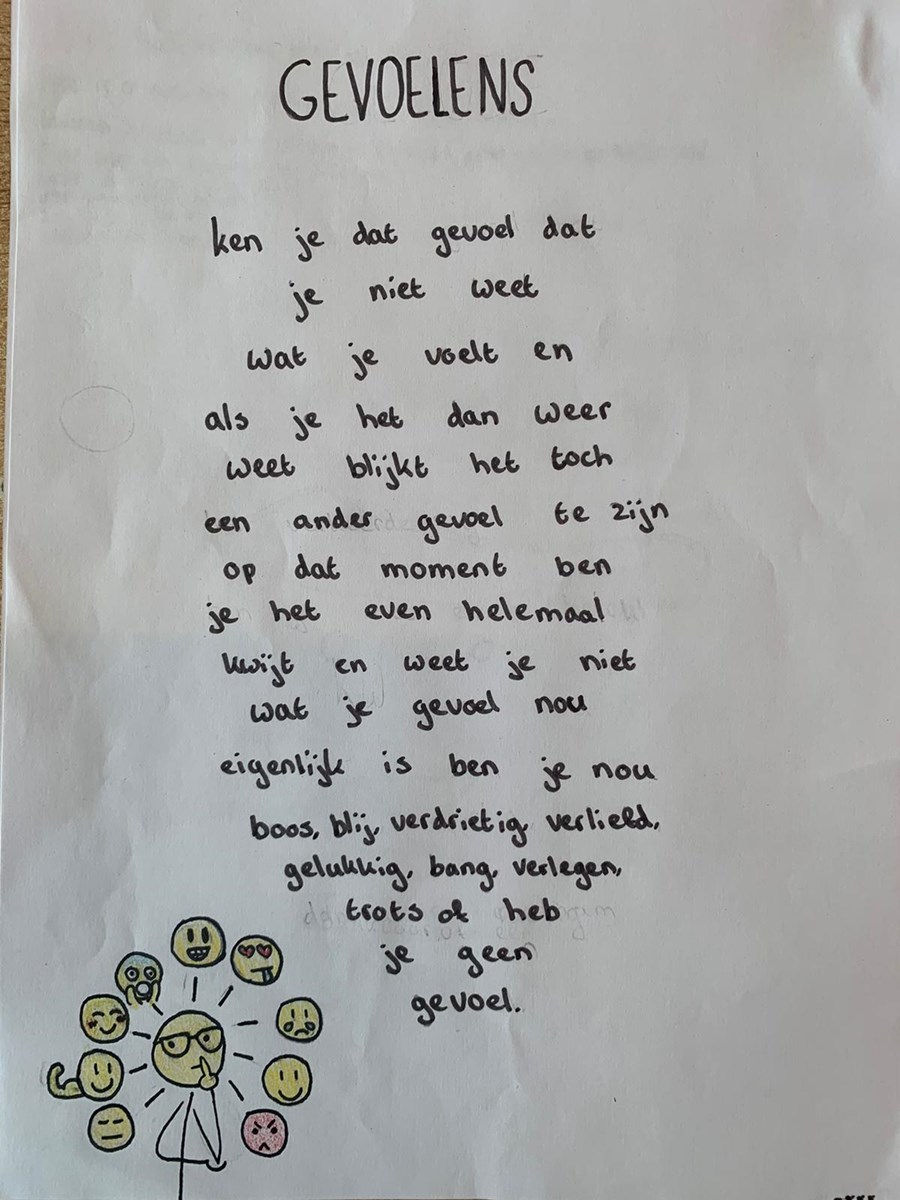 GEVOELENS
ken je dat gevoel dat
je niet weet
wat je voelt en
als je het dan weer
weet blijkt het toch
een ander gevoel te zijn
op dat moment ben
je het even helemaal
kwijt en weet je niet
wat je gevoel nou
eigenlijk is ben je nou
boos, blij, verdrietig, verliefd,
gelukkig, bang, verlegen,
trots of heb
je geen
gevoel.